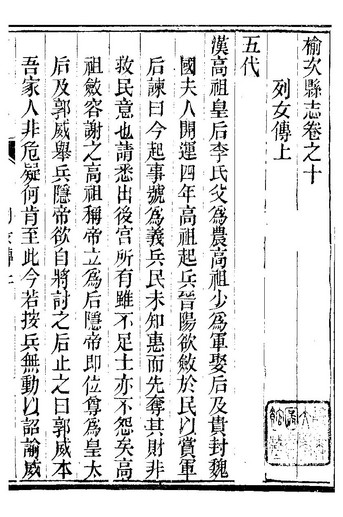 榆次縣志卷之十
列女傳上
五代
漢高祖皇后李氏父爲農高祖少爲軍娶后及貴封魏
國夫人開運四年高祖起兵晉陽欲斂於民以賞軍
后諫曰今起事號爲義兵民未知惠而先奪其財非
救民意也請悉出後宮所有雖不足士亦不怨矣高
祖斂容謝之高祖稱帝立爲后隱帝即位尊爲皇太
后及郭威舉兵隱帝欲自將討之后止之曰郭威本
吾家人非危疑何肯至此今若按兵無動以詔諭威